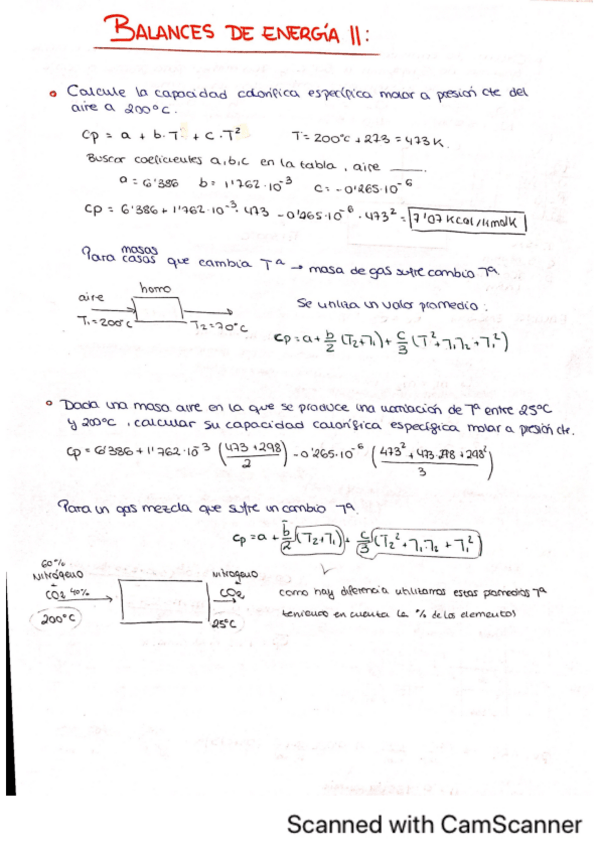 BALANCES DE ENERGÍA II:
• Calcule la capacidad calorífica específica molar a presión cte del
aire a 200°C.
Cp = a + b·T + c·T²    T = 200°C + 273 = 473 K
Buscar coeficientes a, b, c en la tabla, aire ____.
a = 6'386   b = 1'762·10⁻³   c = -0'265·10⁻⁶
Cp = 6'386 + 1'762·10⁻³·473 - 0'265·10⁻⁶·473² = 7'07 Kcal/KmolK
masas
Para casos que cambia Tª → masa de gas sufre cambio Tª.
aire
horno
T₁=200°C
T₂=70°C
Se utiliza un valor promedio:
Cp = a + b/2 (T₂+T₁) + c/3 (T²+T₁T₂+T₁²)
• Dada una masa aire en la que se produce una variación de Tª entre 25°C
y 200°C, calcular su capacidad calorífica específica molar a presión cte.
Cp = 6'386 + 1'762·10⁻³ (473+298/2) - 0'265·10⁻⁶ (473²+473·298+298²/3)
Para un gas mezcla que sufre un cambio Tª.
Cp = a + b/2 (T₂+T₁) + c/3 (T₂²+T₁·T₂+T₁²)
60%
Nitrógeno
CO₂ 40%
200°C
nitrogeno
CO₂
25°C
como hay diferencia utilizamos estas promedios Tª
teniendo en cuenta la % de los elementos
Scanned with CamScanner